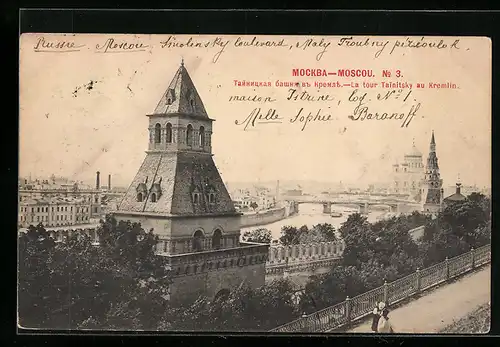 Russie, Moscou, Smolensky boulevard, Maly Troubny péréoulok
МОСКВА—MOSCOU. № 3.
Тайницкая башня въ Кремлѣ.—La tour Taïnitsky au Kremlin.
maison Istrine, log. № 1
Melle Sophie Baranoff